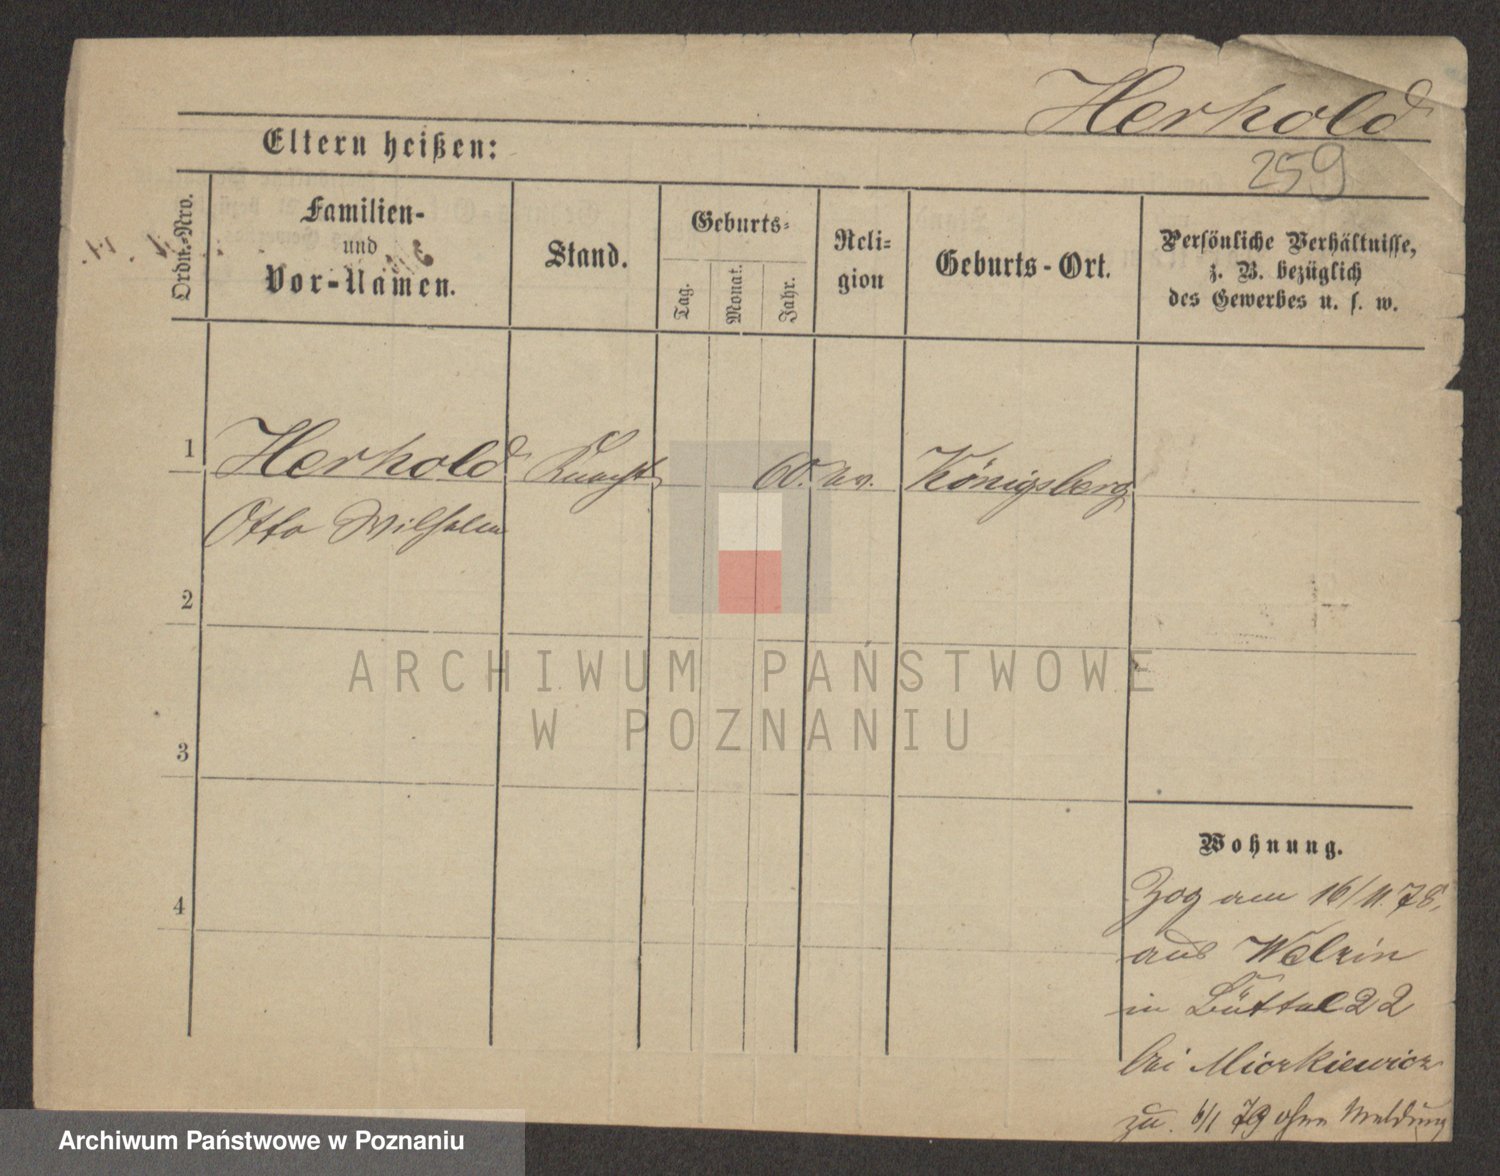 Herhold
Eltern heißen:
259
Ordn.-Nro.
Familien-
und
Vor-Namen.
Stand.
Geburts-
Tag.
Monat.
Jahr.
Reli-
gion
Geburts-Ort.
Persönliche Verhältnisse,
z. B. bezüglich
des Gewerbes u. s. w.
1 Herhold Knecht 60. ev. Königsberg
Otto Wilhelm
2
ARCHIWUM PAŃSTWOWE
W POZNANIU
3
Wohnung.
4
Zog am 16/11.78.
aus Welzin
in Büttel 22
bei Miczkiewicz
zu. 6/1 79 ohne Meldung
Archiwum Państwowe w Poznaniu